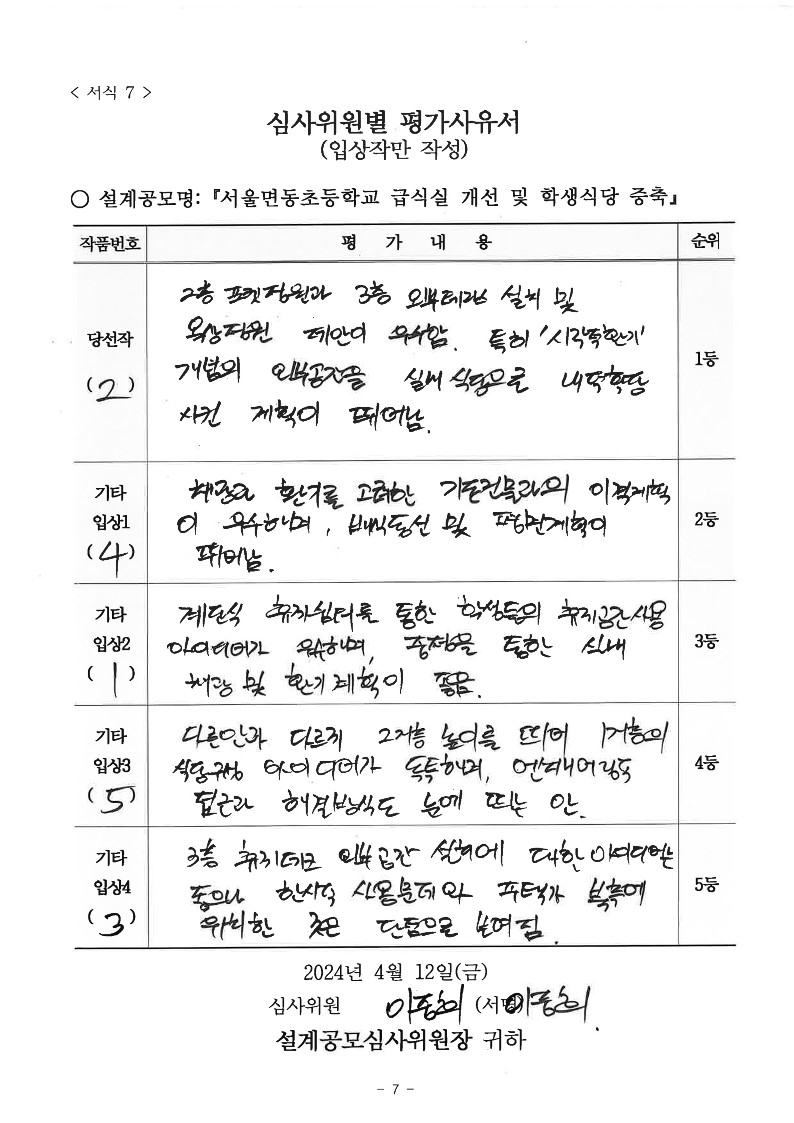 < 서식 7 >
심사위원별 평가사유서
(입상작만 작성)
○ 설계공모명: 『서울면동초등학교 급식실 개선 및 학생식당 증축』
작품번호 평 가 내 용 순위
당선작
( 2 )
2층 포켓정원과 3층 외부테라스 설치 및
옥상정원 제안이 우수함. 특히 '시각적환기'
개념의 외부공간을 실내 식당으로
시킨 계획이 뛰어남.
1등
기타
입상1
( 4 )
채광과 환기를 고려한 기존건물과의 이격계획
이 우수하며, 배식동선 및 평면계획이
뛰어남.
2등
기타
입상2
( 1 )
계단식 휴게쉼터를 통한 학생들의 휴게공간사용
아이디어가 우수하며, 중정을 통한 실내
채광 및 환기계획이 좋음.
3등
기타
입상3
( 5 )
다른안과 다르게 2개층 높이를 띄어 1개층의
식당구성 아이디어가 독특하며,
접근과 해결방식도 눈에 띄는 안.
4등
기타
입상4
( 3 )
3층 휴게데크 외부공간 설치에 대한 아이디어는
좋으나 한시적 사용문제와 북측에
위치한 것은 단점으로 보여짐.
5등
2024년 4월 12일(금)
심사위원 이동희 (서명) 이동희
설계공모심사위원장 귀하
- 7 -